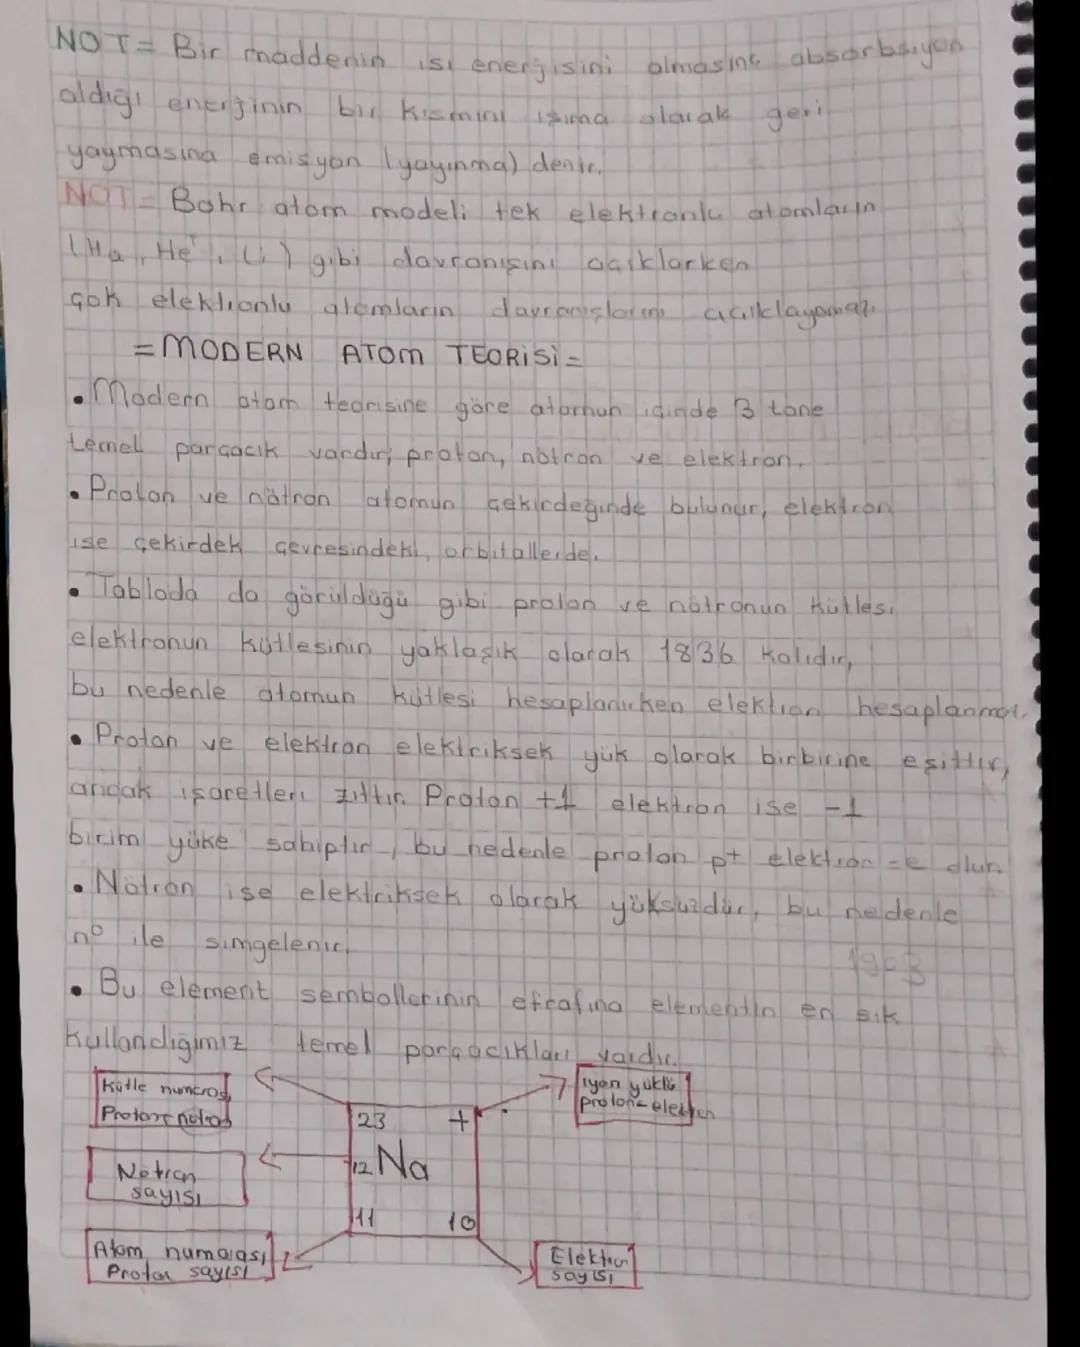 NOT= Bir maddenin ısı enerjisini almasına absorbsiyon
aldığı enerjinin bir kısmını ışıma olarak geri
yaymasına emisyon (yayınma) denir.
NOT= Bohr atom modeli tek elektronlu atomların
He⁺, Li) gibi davranışını açıklarken
çok elektronlu atomların davranışlarını açıklayamaz.
=MODERN ATOM TEORİSİ=
• Modern atom teorisine göre atomun içinde 3 tane
temel parçacık vardır; proton, nötron ve elektron.
• Proton ve nötron atomun çekirdeğinde bulunur, elektron
ise çekirdek çevresindeki orbitallerde.
• Tabloda da görüldüğü gibi proton ve nötronun kütlesi
elektronun kütlesinin yaklaşık olarak 1836 katıdır,
bu nedenle atomun kütlesi hesaplanırken elektron hesaplanmaz.
• Proton ve elektron elektriksek yük olarak birbirine eşittir,
ancak işaretleri zıttır. Proton +1 elektron ise -1
birim yüke sahiptir, bu nedenle proton p+ elektron -e olur.
• Nötron ise elektriksek olarak yüksüzdür, bu nedenle
n⁰ ile simgelenir.
• Bu element sembollerinin etrafına elementin en sık
kullandığımız temel parçacıkları vardır.
Kütle numarası
Proton+nötron
İyon yükü
proton-elektron
23 +
12 Na
Nötron
sayısı
11 10
Atom numarası
Proton sayısı
Elektron
sayısı